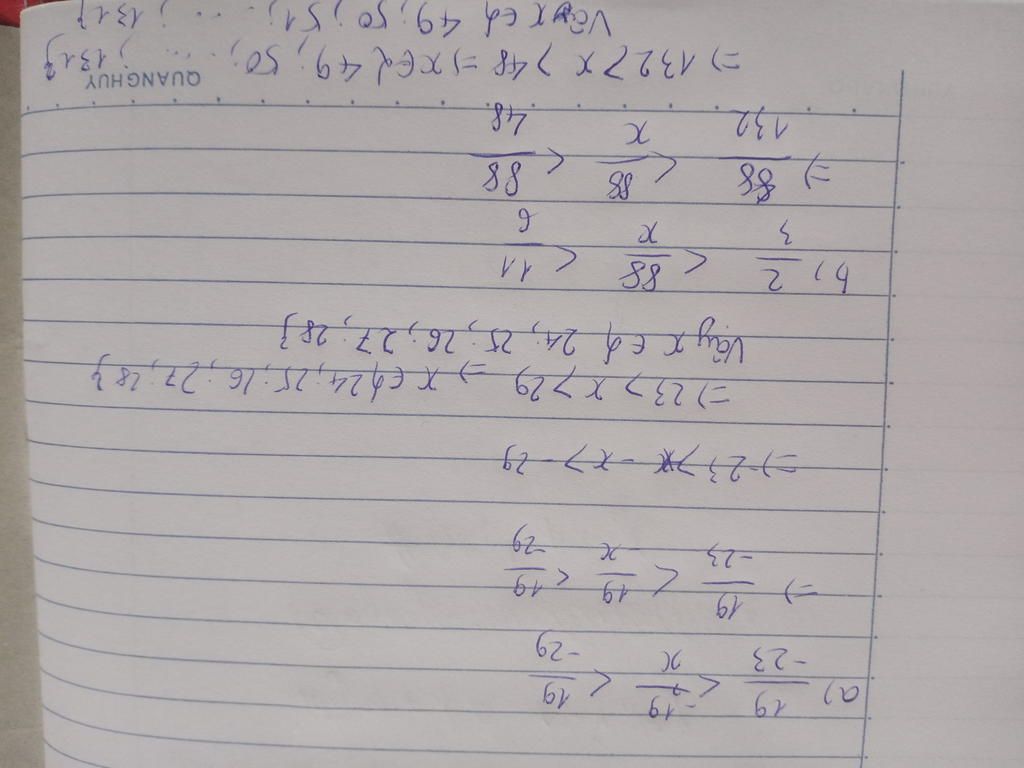 a) 19/-23 < -19/x < 19/-29
=) 19/-23 < 19/-x < 19/-29
=) -23 > -x > -29
=) 23 < x < 29 =) x ∈ { 24; 25; 26; 27; 28 }
Vậy x ∈ { 24; 25; 26; 27; 28 }
b) 2/3 < 88/x < 11/6
=) 88/132 < 88/x < 88/48
QUANGHUY
=) 132 > x > 48 =) x ∈ { 49; 50; ...; 131 }
Vậy x ∈ { 49; 50; 51; ...; 131 }